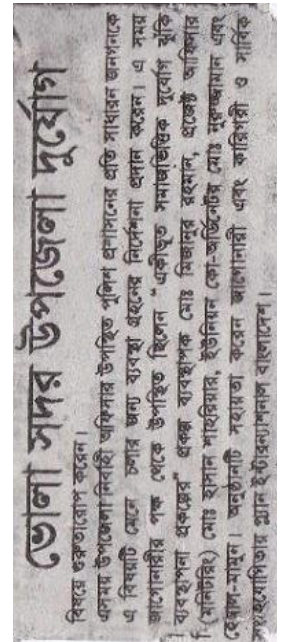 ভোলা সদর উপজেলা দুর্যোগ
বিষয়ে গুরুত্বারোপ করেন।
এসময় উপজেলা নির্বাহী অফিসার উপস্থিত পুলিশ প্রশাসনের প্রতি সাধারন জনগনকে
এ বিষয়টি মেনে চলার জন্য ব্যবস্থা গ্রহনের নির্দেশনা প্রদান করেন। এ সময়
জাগোনারীর পক্ষ থেকে উপস্থিত ছিলেন “একীভূত সমাজভিত্তিক দুর্যোগ ঝুঁকি
ব্যবস্থাপনা প্রকল্পের” প্রকল্প ব্যবস্থাপক মোঃ মিজানুর রহমান, প্রজেক্ট অফিসার
(মনিটরিং) মোঃ হাসান শাহরিয়ার, ইউনিয়ন কো-অর্ডিনেটর মোঃ নুরুজ্জামান এবং
হারুন-মামুন। অনুষ্ঠানটি সহায়তা করেন জাগোনারী এবং কারিগরী ও সার্বিক
সহযোগিতায় প্ল্যান ইন্টারন্যাশনাল বাংলাদেশ।